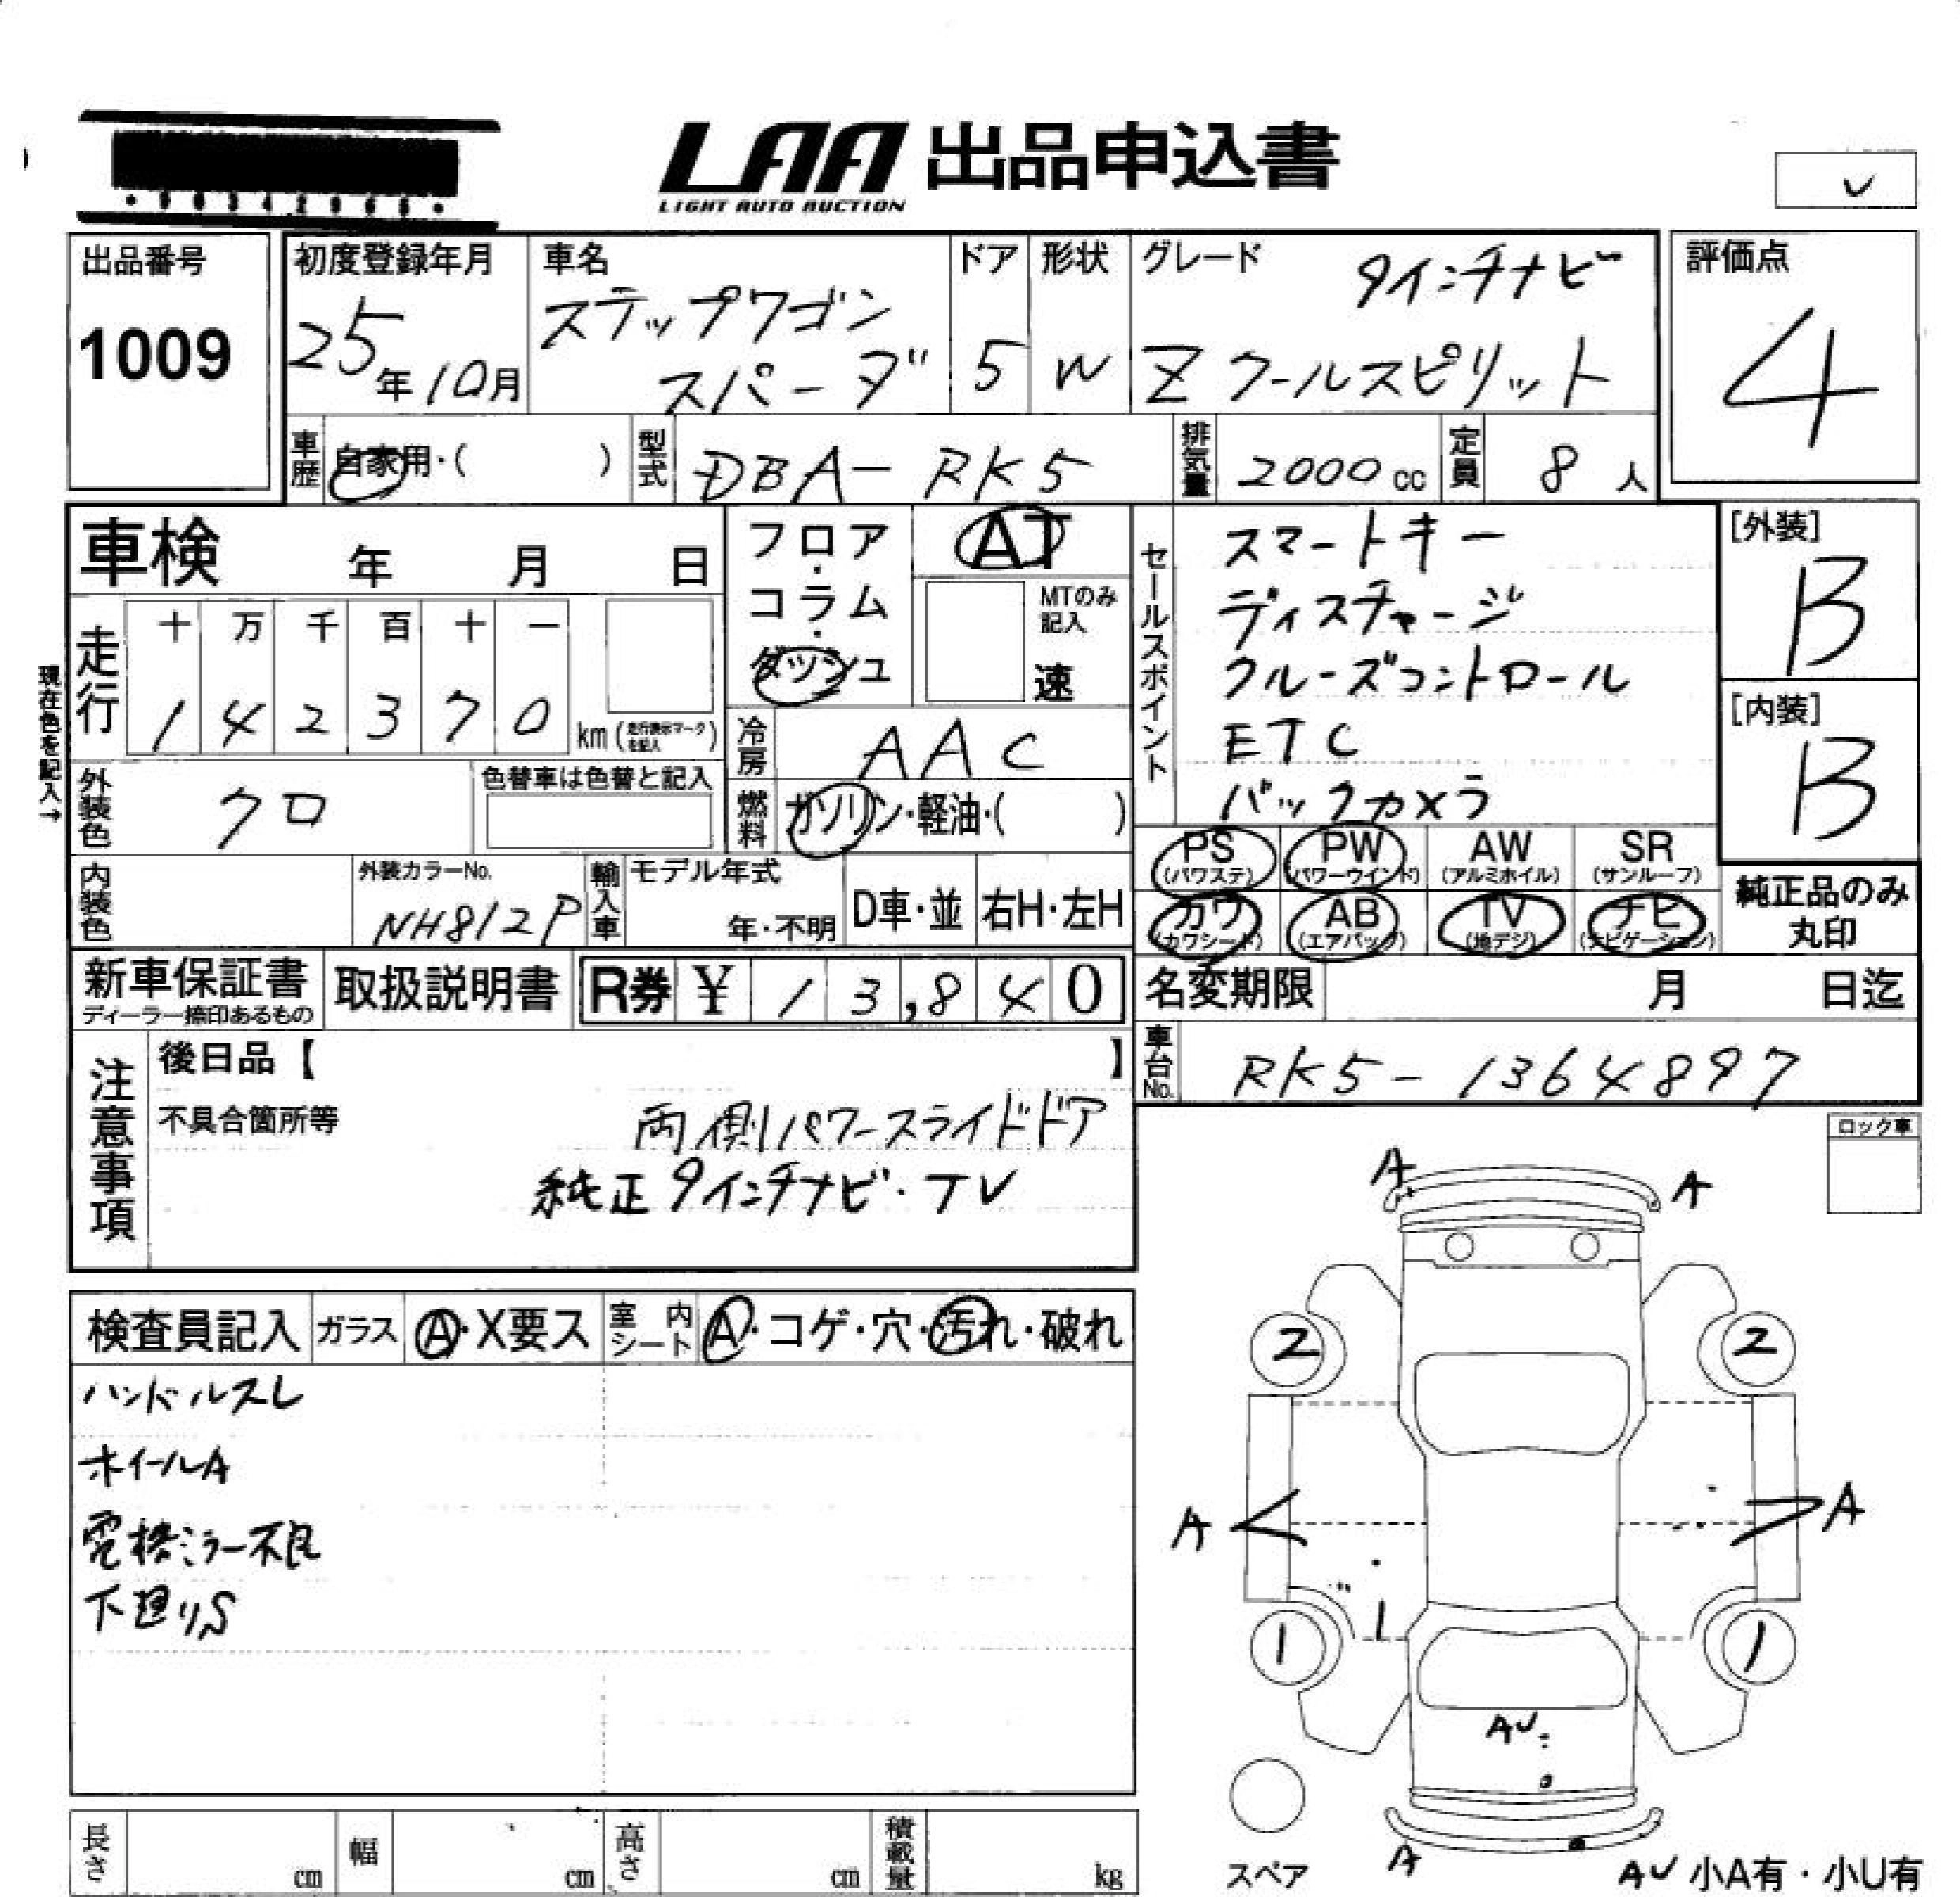 LAA 出品申込書
LIGHT AUTO AUCTION
出品番号
1009
初度登録年月
25年10月
車名
ステップワゴン
スパーダ
ドア
5
形状
W
グレード
9インチナビ
Zクールスピリット
評価点
4
車歴
自家用・( )
型式
DBA-RK5
排気量
2000cc
定員
8人
車検 年 月 日
フロア・コラム・ダッシュ
AT
MTのみ記入
速
セールスポイント
スマートキー
ディスチャージ
クルーズコントロール
ETC
バックカメラ
[外装]
B
[内装]
B
現在色を記入→
走行
十 万 千 百 十 一
1 4 2 3 7 0 km (走行表示マークを記入)
冷房
AAC
外装色
クロ
色替車は色替と記入
燃料
ガソリン・軽油・( )
PS (パワステ)
PW (パワーウインド)
AW (アルミホイル)
SR (サンルーフ)
カワ (カワシート)
AB (エアバッグ)
TV (地デジ)
ナビ (ナビゲーション)
純正品のみ
丸印
内装色
外装カラーNo.
NH812P
輸入車
モデル年式
年・不明
D車・並
右H・左H
新車保証書
ディーラー捺印あるもの
取扱説明書
R券 ¥ 1 3,8 4 0
名変期限 月 日迄
車台No.
RK5-1364897
注意事項
後日品【 】
不具合箇所等
両側パワースライドドア
純正9インチナビ・TV
ロック車
検査員記入
ガラス
A・X要ス
室内シート
A・コゲ・穴・汚れ・破れ
ハンドルスレ
ホイールA
電格ミラー不良
下廻りS
A
A
2
2
A
A
1
1
AU
A
スペア
AU 小A有・小U有
長さ cm
幅 cm
高さ cm
積載量 kg